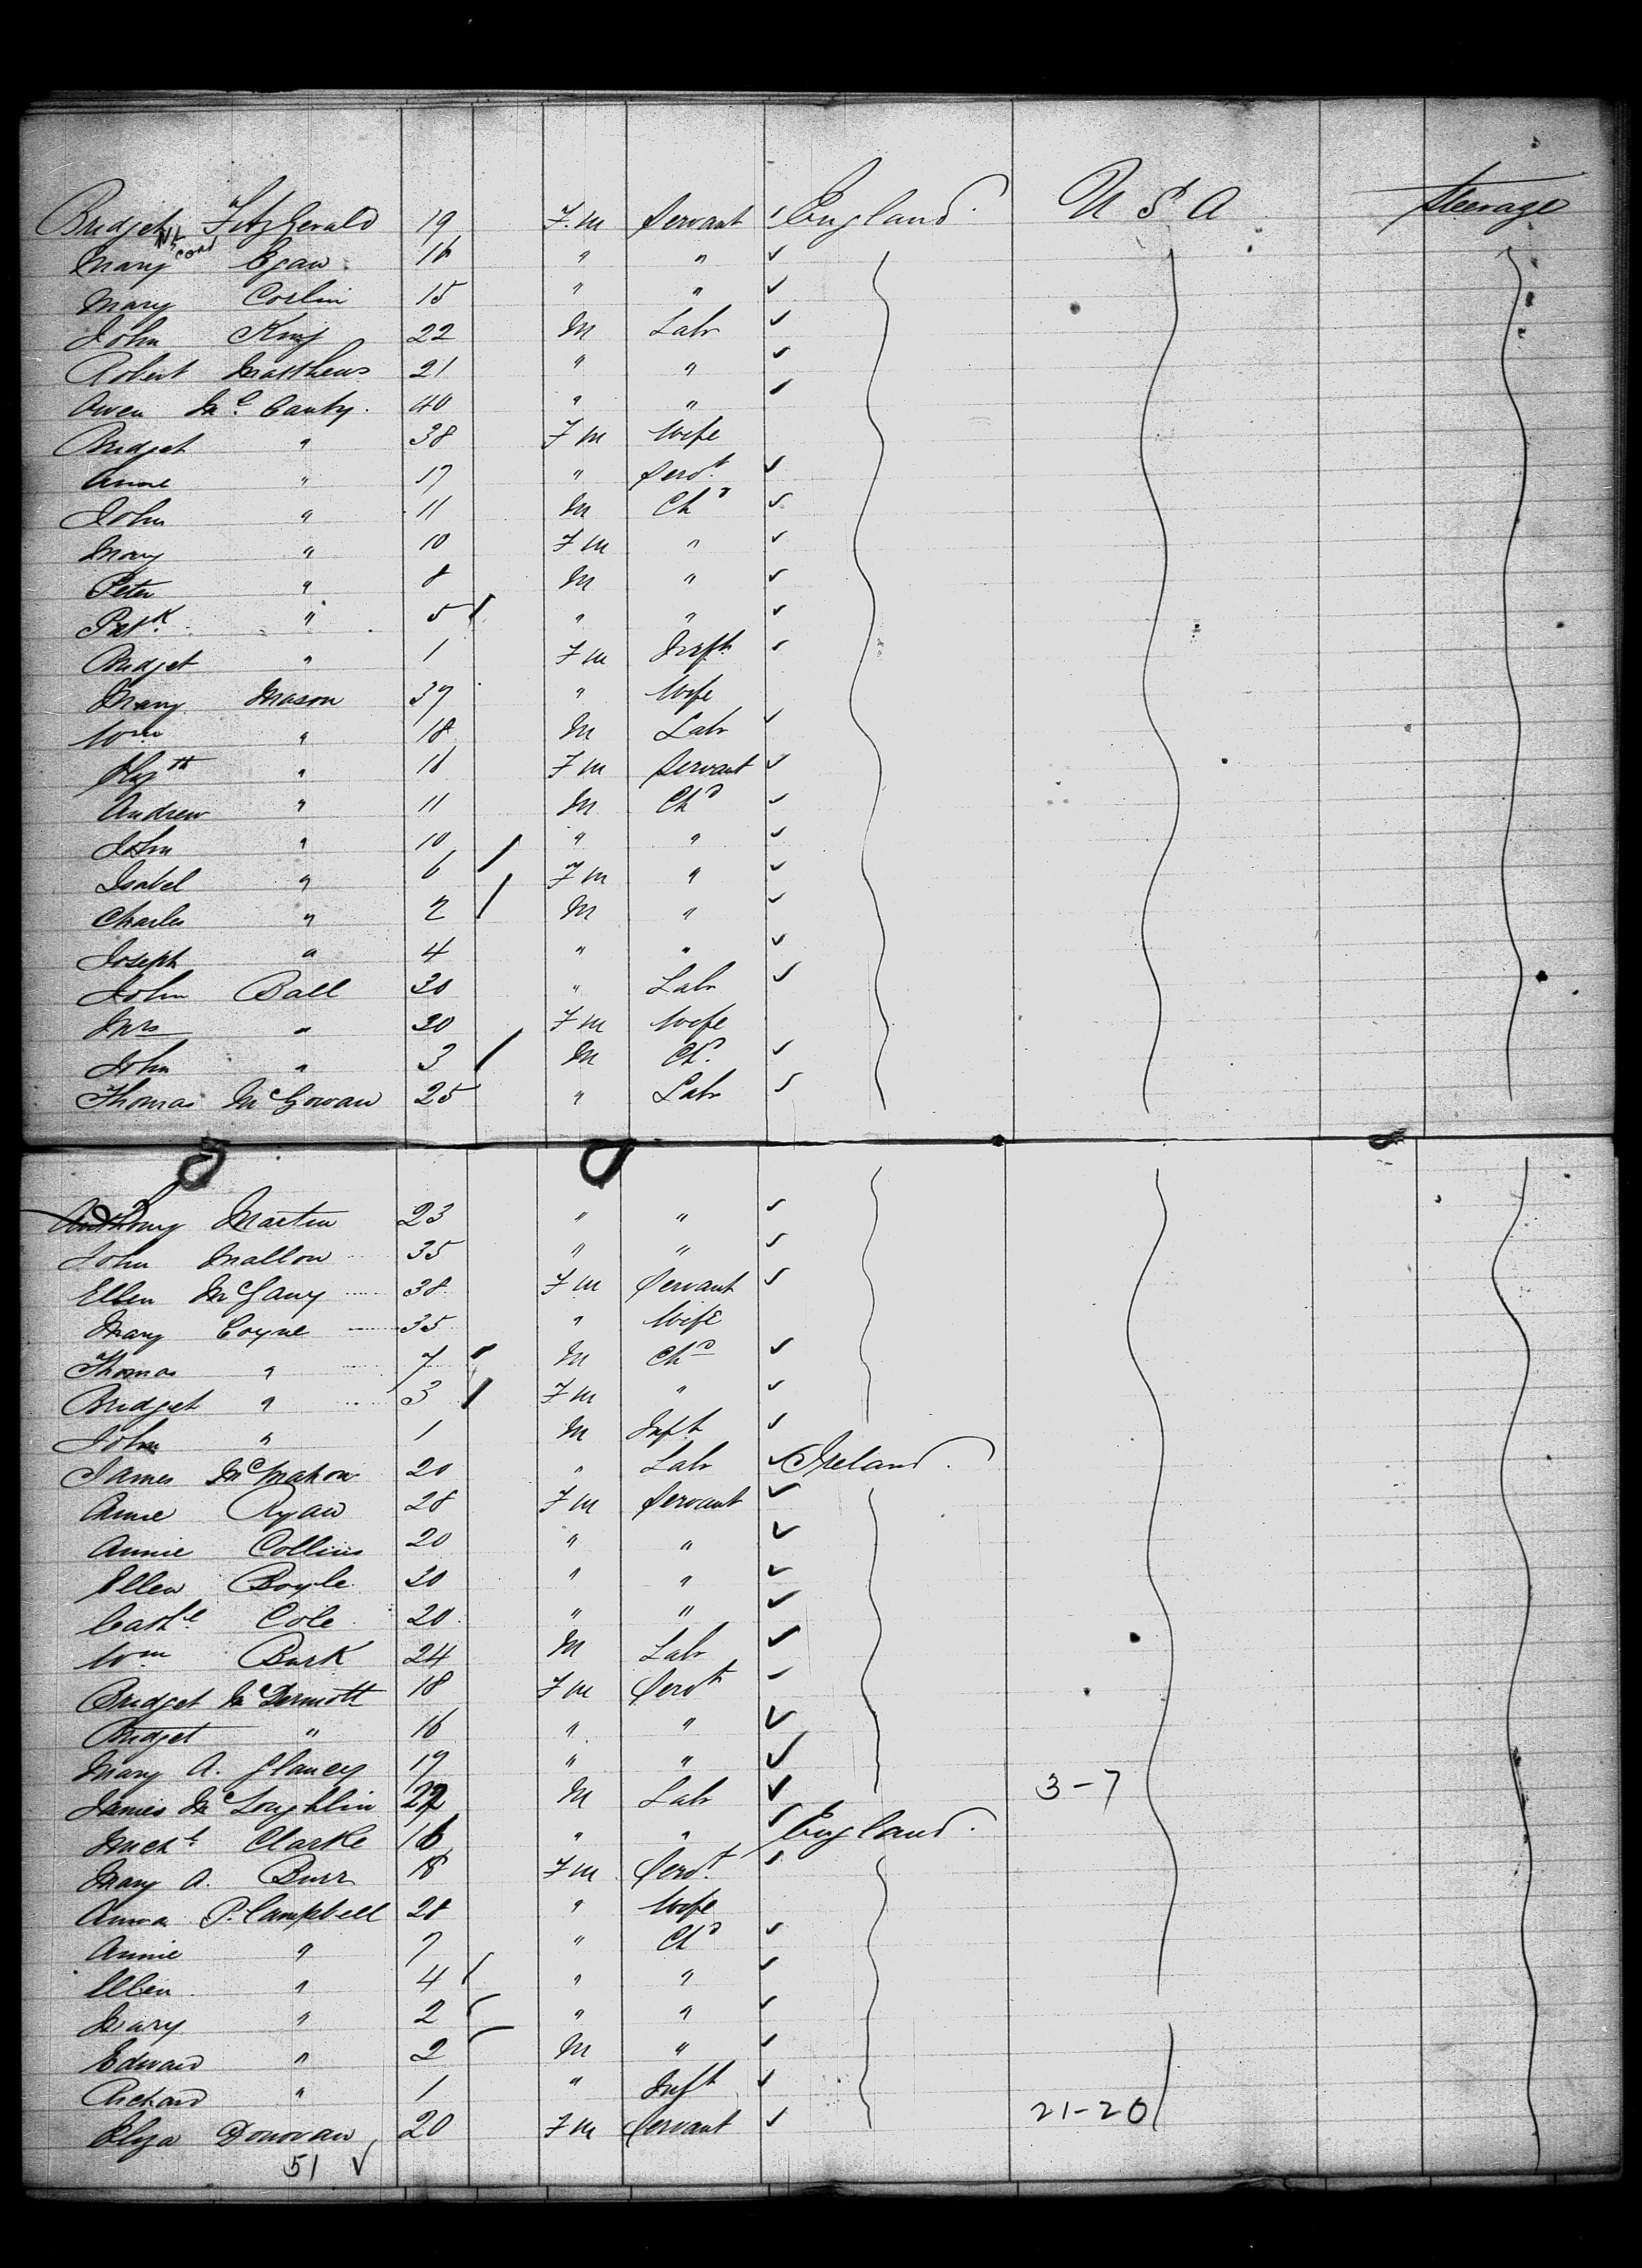 Bridget FitzGerald 19 F.m Servant ✓ England. U S A Steerage
Mary Egan 16 " " ✓
Mary Coslin 15 " " ✓
John King 22 M Labr ✓
Robert Matthews 21 " " ✓
Owen Mc Canty. 40 " " ✓
Bridget " 38 F m Wife
Anne " 17 " Servt. ✓
John " 11 M Chd ✓
Mary " 10 F m " ✓
Peter " 8 M " ✓
Patk. " 5 / " " ✓
Bridget " 1 F m Inft. ✓
Mary Mason 37 " Wife
Wm " 18 M Labr ✓
" 16 F m Servant ✓
Andrew " 11 M Chd ✓
John " 10 " " ✓
Isabel " 6 / F m " ✓
Charles " 2 / M " ✓
Joseph " 4 " " ✓
John Ball 30 " Labr ✓
Mrs " 30 F m Wife
John " 3 / M Chd. ✓
Thomas McGowan 25 " Labr ✓
Anthony Martin 23 " " ✓
John Mallon 35 " " ✓
Ellen McGany 38 F m Servant ✓
Mary Coyne 35 " Wife
Thomas " 7 / M Chd ✓
Bridget " 3 / F m " ✓
John " 1 M Inft ✓
James McMahon 20 " Labr ✓ Ireland.
Anne Ryan 28 F m Servant ✓
Annie Collins 20 " " ✓
Ellen Boyle 20 " " ✓
Cathe. Cole 20 " " ✓
Wm Burk 24 M Labr ✓
Bridget McDermott 18 F m Servt ✓
Bridget " 16 " " ✓
Mary A. Glancy 19 " " ✓
James McLoughlin 22 M Labr ✓ 3-7
Michl. Clarke 16 " " ✓ England.
Mary A. Burr 18 F m Servt. ✓
Anna P. Campbell 28 " Wife
Annie " 7 " Chd ✓
Ellen " 4 / " " ✓
Mary " 2 / " " ✓
Edward " 2 / M " ✓
Richard " 1 " Inft ✓
Eliza Donovan 20 F m Servant ✓ 21-20
51 ✓